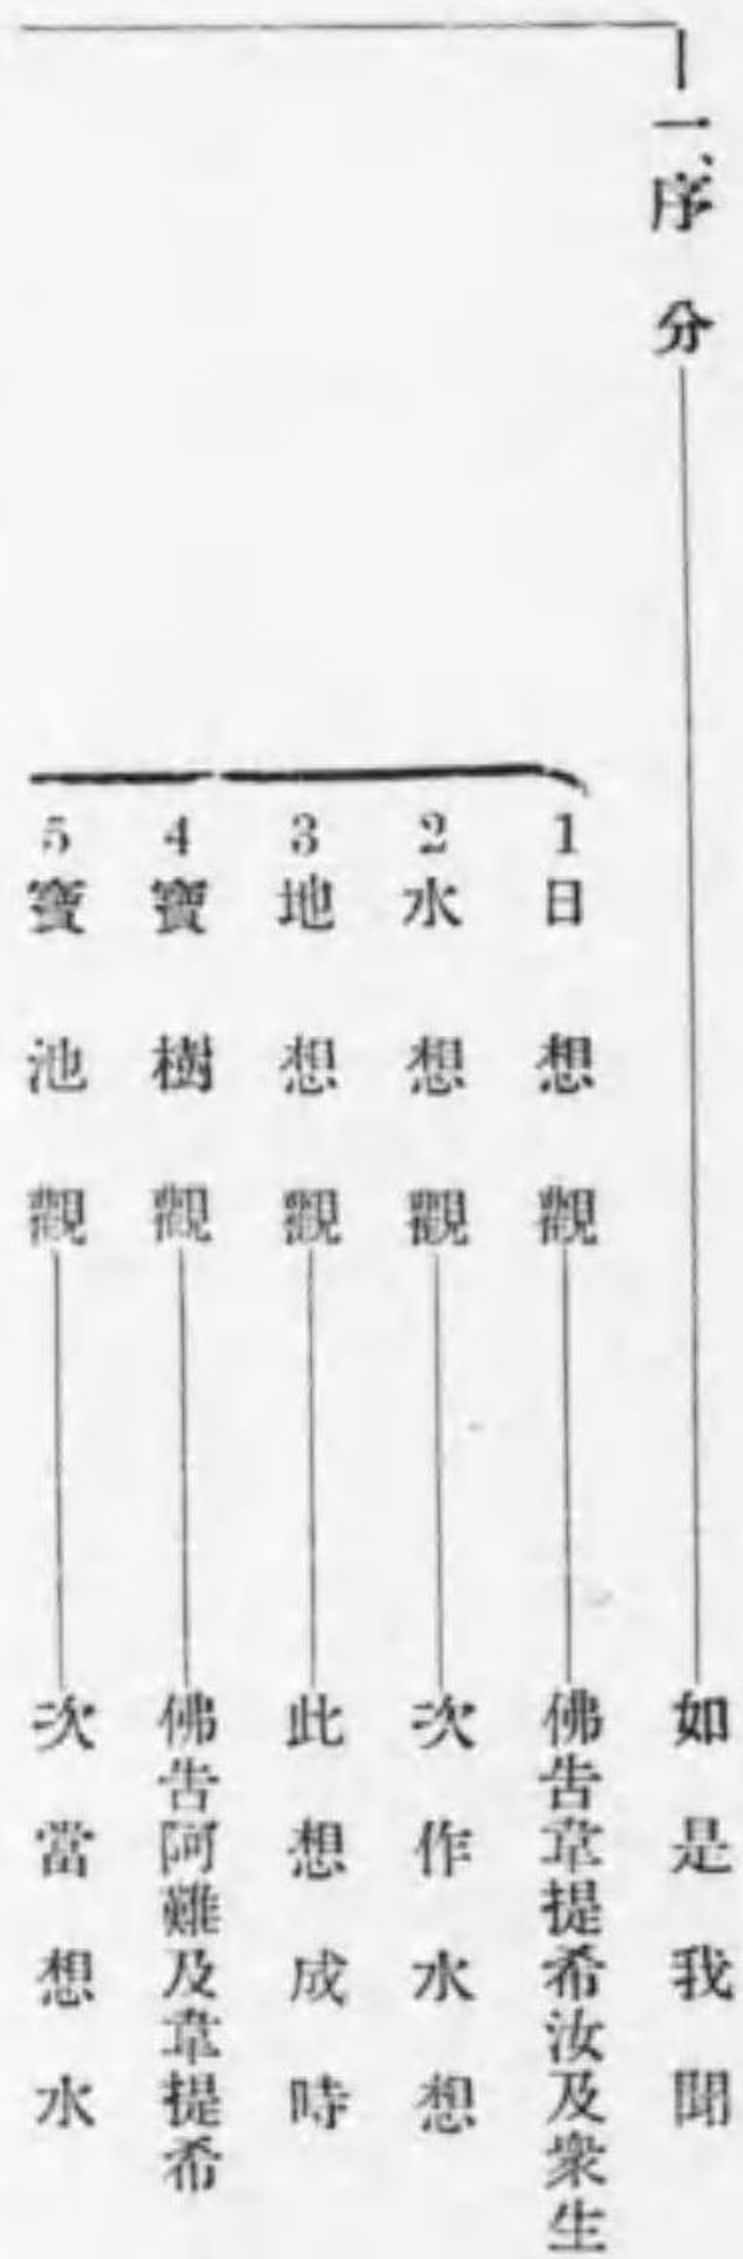 一、序分 如是我聞
1日想觀 佛告韋提希汝及衆生
2水想觀 次作水想
3地想觀 此想成時
4寶樹觀 佛告阿難及韋提希
5寶池觀 次當想水